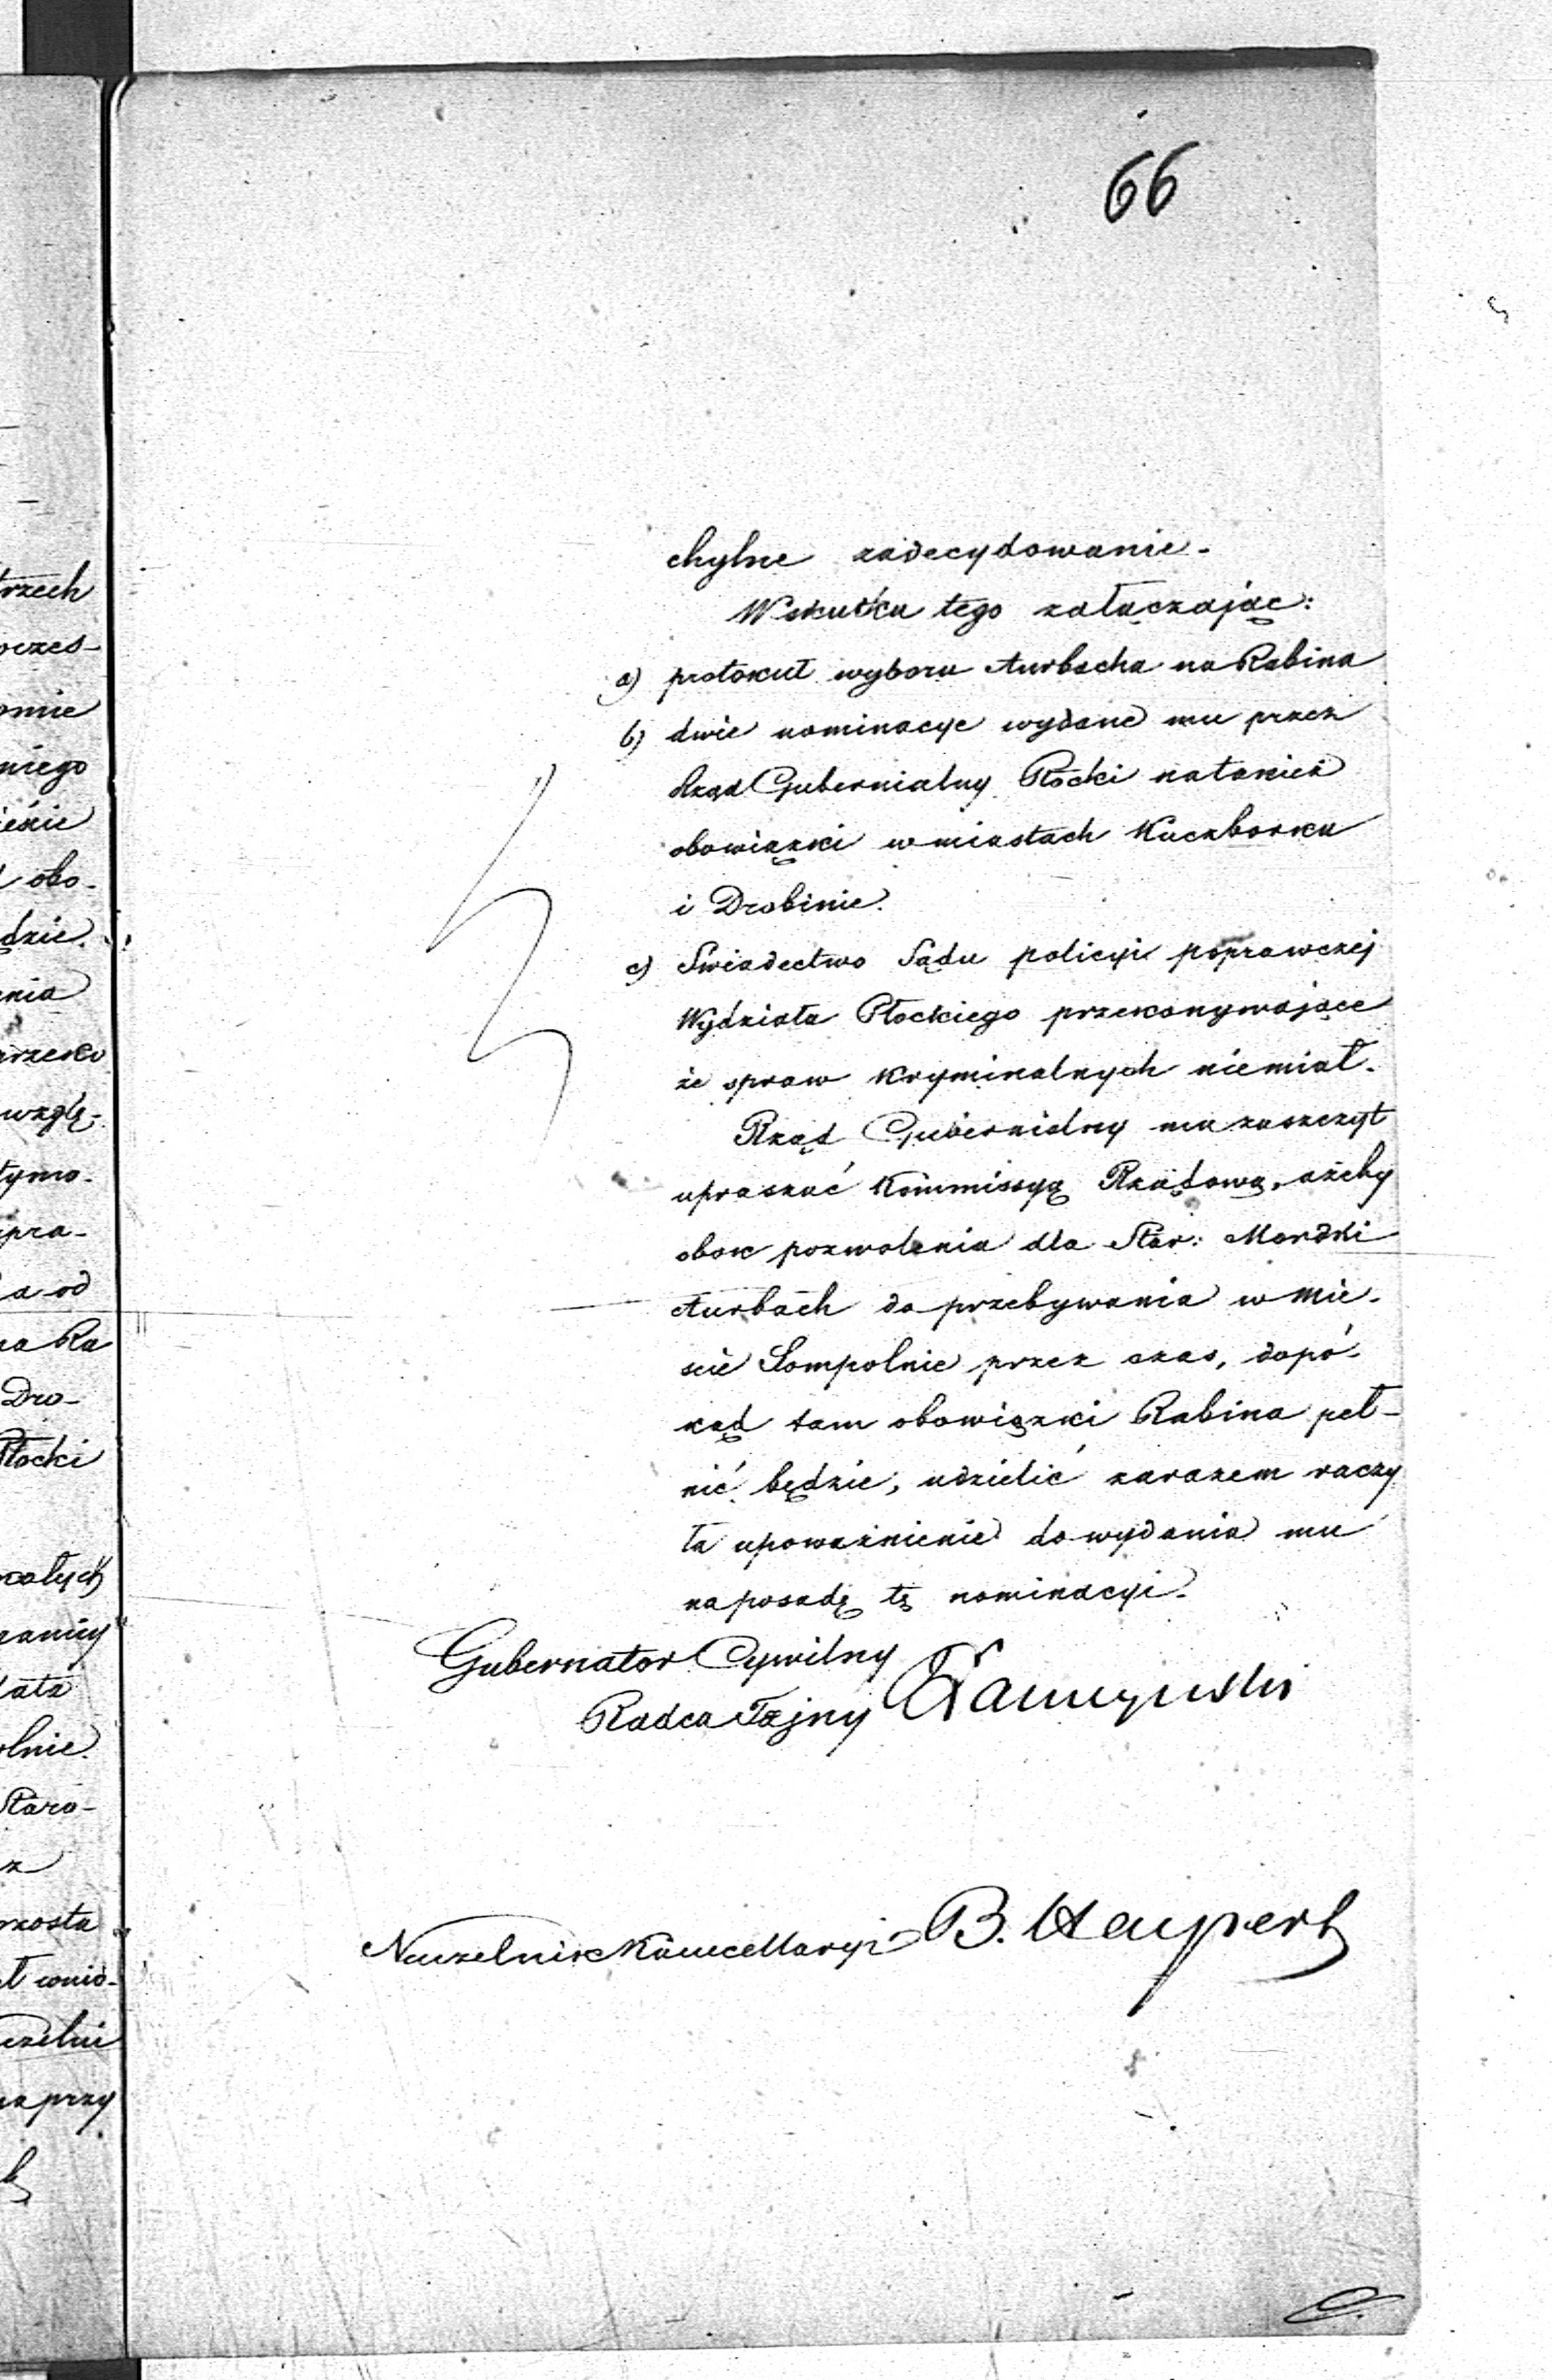 66
chylne zadecydowanie.
Wskutku tego załączając:
a) protokuł wyboru Aurbacha na Rabina
b) dwie nominacye wydane mu przez
Rząd Gubernialny Płocki na takież
obowiązki w miastach Kuczborku
i Drobinie.
c) Świadectwo Sądu policyi poprawczej
Wydziału Płockiego przekonywające
że spraw kryminalnych niemiał.
Rząd Gubernialny ma zaszczyt
upraszać Kommissyą Rządową, ażeby
obok pozwolenia dla Star: Mordki
Aurbach do przebywania w mie-
scie Sompolnie przez czas, dopó-
kąd tam obowiązki Rabina peł-
nić będzie, udzielić zarazem raczy
ła upoważnienie do wydania mu
na posadę tę nominacyi.
Gubernator Cywilny
Radca Tajny
Naczelnik Kancellaryi B. Haypert
trzech
oczes-
omie
niego
obo-
dzie.
enia
wzglę-
tymo-
pra-
a od
na Ra
Dro-
Płocki
całych
łata
olnie
Staro-
z
rzosta
czelni
przy